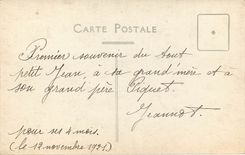 CARTE POSTALE
Premier souvenir du tout
petit Jean, à sa grand'mère et à
son grand père Piquet.
Jeannot.
pour ses 4 mois.
(le 12 novembre 1921.)